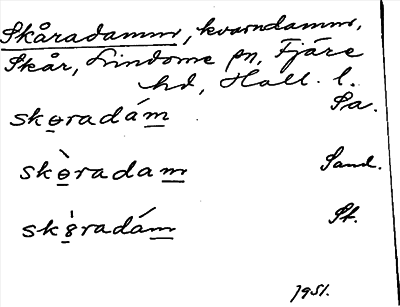 Skåradamm, kvarndamm,
Skår, Lindome sn, Fjäre
hd, Hall. l.
skɵradám Sa.
skɵ̀radam Sand.
sk8̀radám St.
1951.